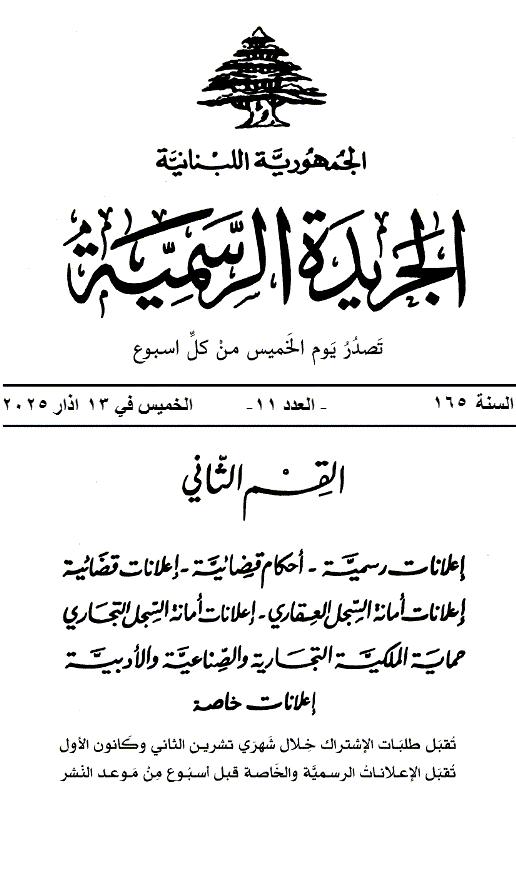 الجُمهُوريَّة اللبْنانيَّة
الجَريدَة الرسَّميَّة
تَصدُرُ يَوم الخَميس منْ كلِّ اسبوع
السنة ١٦٥ - العدد ١١- الخميس في ١٣ اذار ٢٠٢٥
القِسْم الثّاني
إعلانات رسميَّة - أحكام قضائيَّة - إعلانات قضائية
إعلانات أمانة السّجل العقاري - إعلانات أمانة السّجل التجاري
حماية الملكيَّة التجارية والصّناعيَّة والأدبيَّة
إعلانات خاصة
تُقبَل طلبَات الإشتراك خلال شَهرَي تشرين الثاني وكَانون الأول
تُقبَل الإعلانات الرسميَّة والخَاصة قبل أسبُوع مِنْ مَوعد النّشر